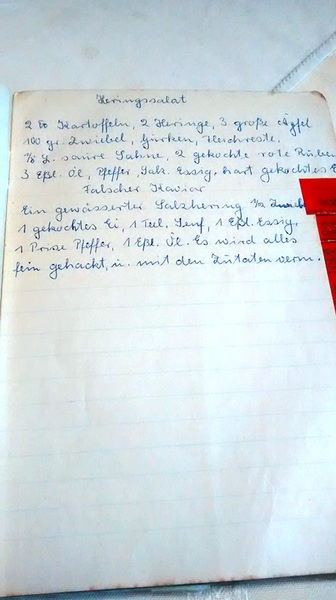 Heringssalat
2 Kartoffeln, 2 Heringe, 3 große Äpfel
100 gr. Zwiebel, Gurken, Fleischreste,
1/8 l. saure Sahne, 2 gekochte rote Rüben
3 Eßl. Öl, Pfeffer, Salz. Essig. hart gekochtes E
Falscher Kaviar
Ein gewässerter Salzhering 1/2
1 gekochtes Ei, 1 Teel. Senf, 1 Eßl. Essig,
1 Prise Pfeffer, 1 Eßl. Öl. Es wird alles
fein gehackt, u. mit den Zutaten verm.